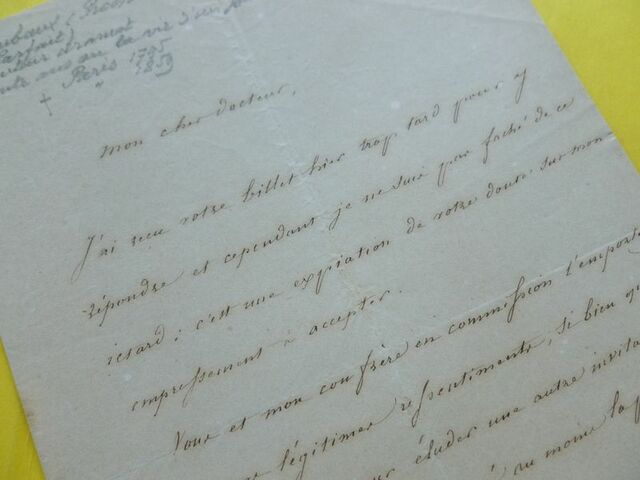 ubaux (Prosp
Parfait)
uteur dramat
nte ans ou la vie d'un jo
† Paris 1795
" 1859
mon cher docteur,
J'ai reçu votre billet hier trop tard pour y
répondre et cependant je ne suis pas faché de ce
retard : c'est une expiation de votre doute sur mon
empressement à accepter.
Vous et mon confrère en commission l'emporte
légitimes ressentiments, si bien qu
ur éluder une autre invita
au moins la